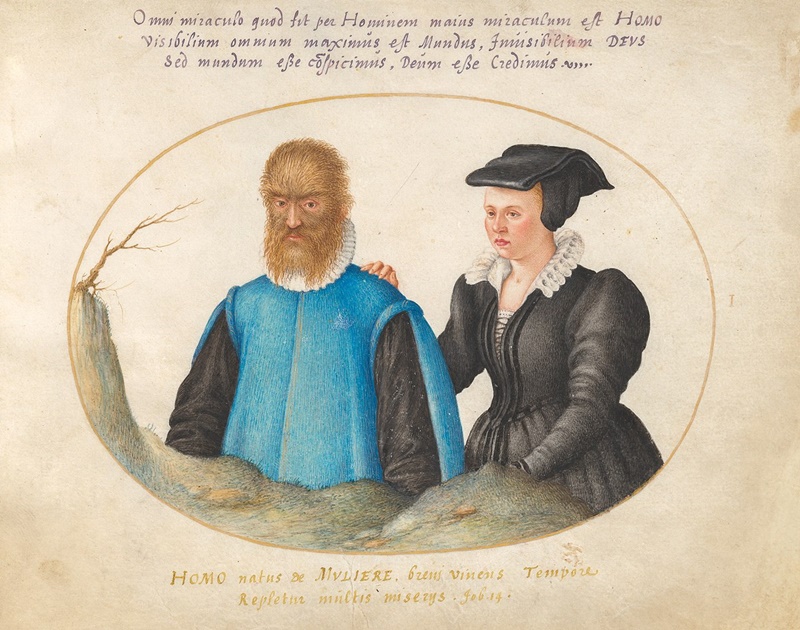 Omni miraculo quod fit per Hominem maius miraculum est HOMO
Visibilium omnium maximus est Mundus, Invisibilium DEVS
Sed mundum eße cōspicimus, Deum eße Credimus
I
HOMO natus de MVLIERE, brevi vivens Tempore
Repletur multis miserys. Job. 14.